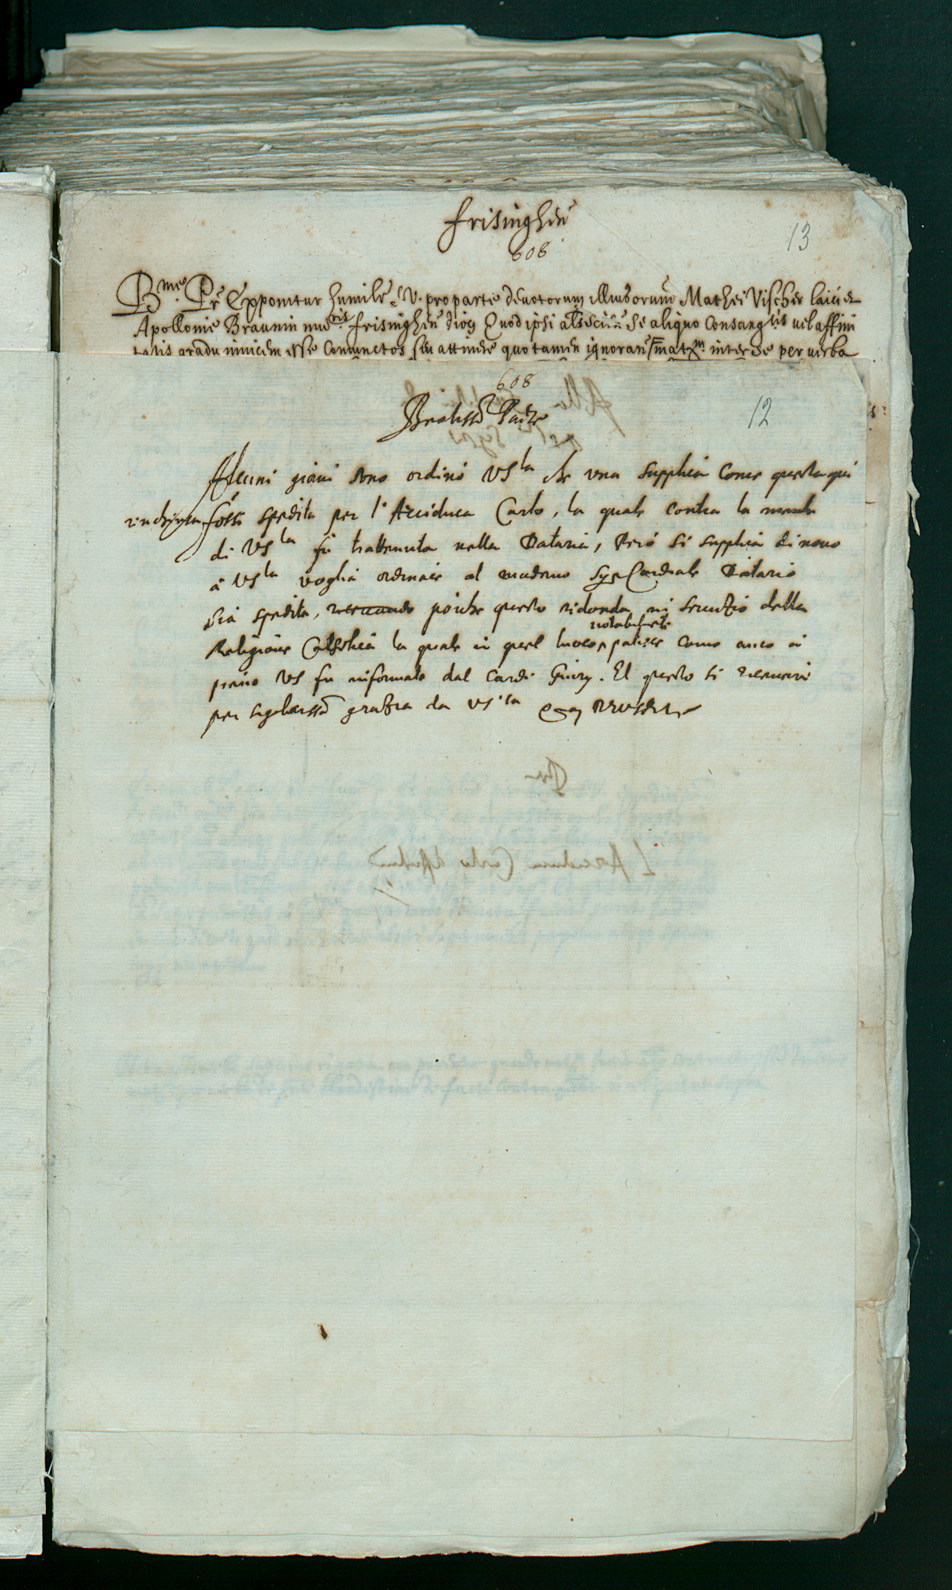 frisinghen
608
13
B.me Pr Exponitur humilr S.V. pro parte devotorum illius oratorum Mathei Vischer laici et
Apollonie Braunin mulieris frisinghen dioc Quod ipsi de aliquo consang.tis vel affini
tatis gradu invicem esse coniunctos seu attinere quotamen ignorans mat.m inter se per verba
608
Beatiss.o Padre
12
Alcuni giorni sono ordinò VS.ta che una supplica come questa qui
inchiusa fosse spedita per l'Arciduca Carlo, la quale contra la mente
di VS.ta fù trattenuta nella Dataria, Però si supplica di novo
à VS.ta voglia ordinare al moderno Sig.r Cardinale Datario
sia spedita, poiche questo ridonda in servitio della
notabilmente
Religione Cattolica la quale in quel luoco patisce come anco
VS fu informato dal Card. Et questo si riceverà
per gratia da VS.ta